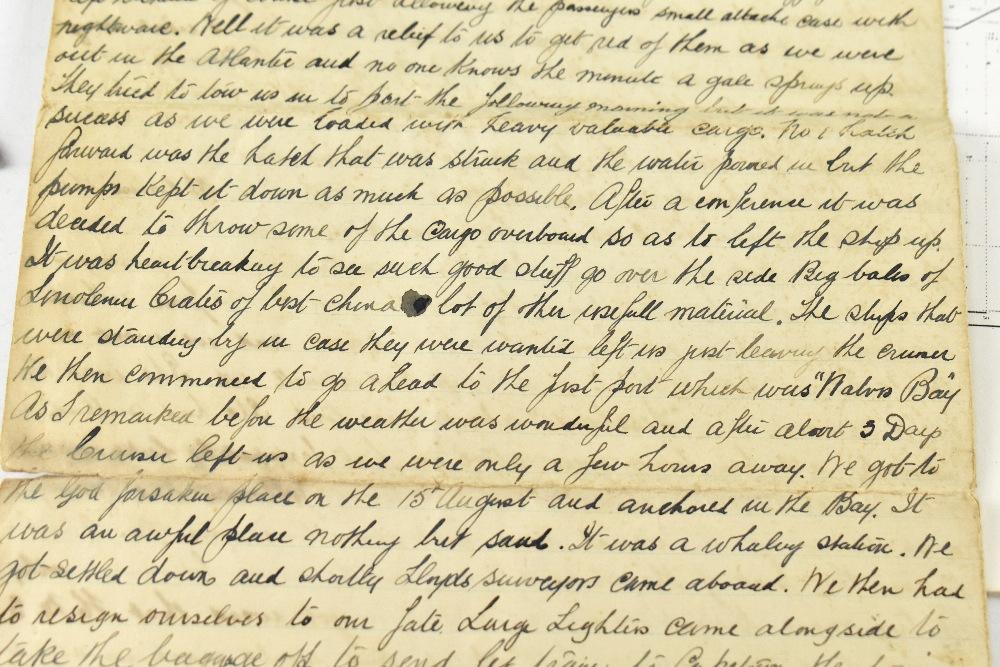 of course just allowing the passengers small attache case with
nightware. Well it was a relief to us to get red of them as we were
out in the Atlantic and no one knows the minute a gale springs up.
They tried to tow us in to port the following morning but it was not a
success as we were loaded with heavy valuable cargo. No 1 hatch
forward was the hatch that was struck and the water poured in but the
pumps kept it down as much as possible. After a conference it was
decided to throw some of the cargo overboard so as to left the ship up.
It was heartbreaking to see such good stuff go over the side Big bales of
Linoleum Crates of best china a lot of other usefull material. The ships that
were standing by in case they were wanted left us just leaving the cruiser
We then commenced to go ahead to the first port which was "Walvis Bay"
As I remarked before the weather was wonderful and after about 3 Days
the Cruiser left us as we were only a few hours away. We got to
the God forsaken place on the 15th August and anchored in the Bay. It
was an awful place nothing but sand. It was a whaling station. We
got settled down and shortly Lloyds surveyors came aboard. We then had
to resign ourselves to our fate. Large Lighters came alongside to
take the baggage off to send by train to Capetown the